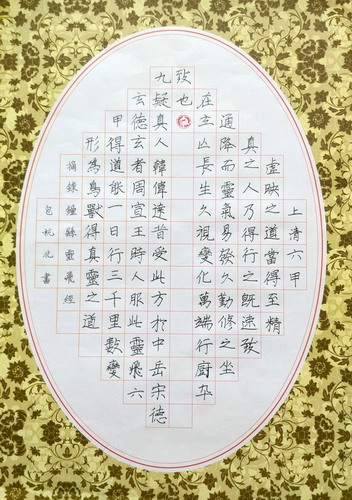 上清六甲
虛映之道當得至精
真之人乃得行之既速致
通降而靈氣易發久勤修之坐
在立亾長生久視變化萬端行厨卆
致也
九疑真人韓偉遠昔受此方於中岳宋德
玄德玄者周宣王時人服此靈飛六
甲得道能一日行三千里數變
形為鳥獸得真靈之道
摘錄鐘縣靈飛經
包杭北書